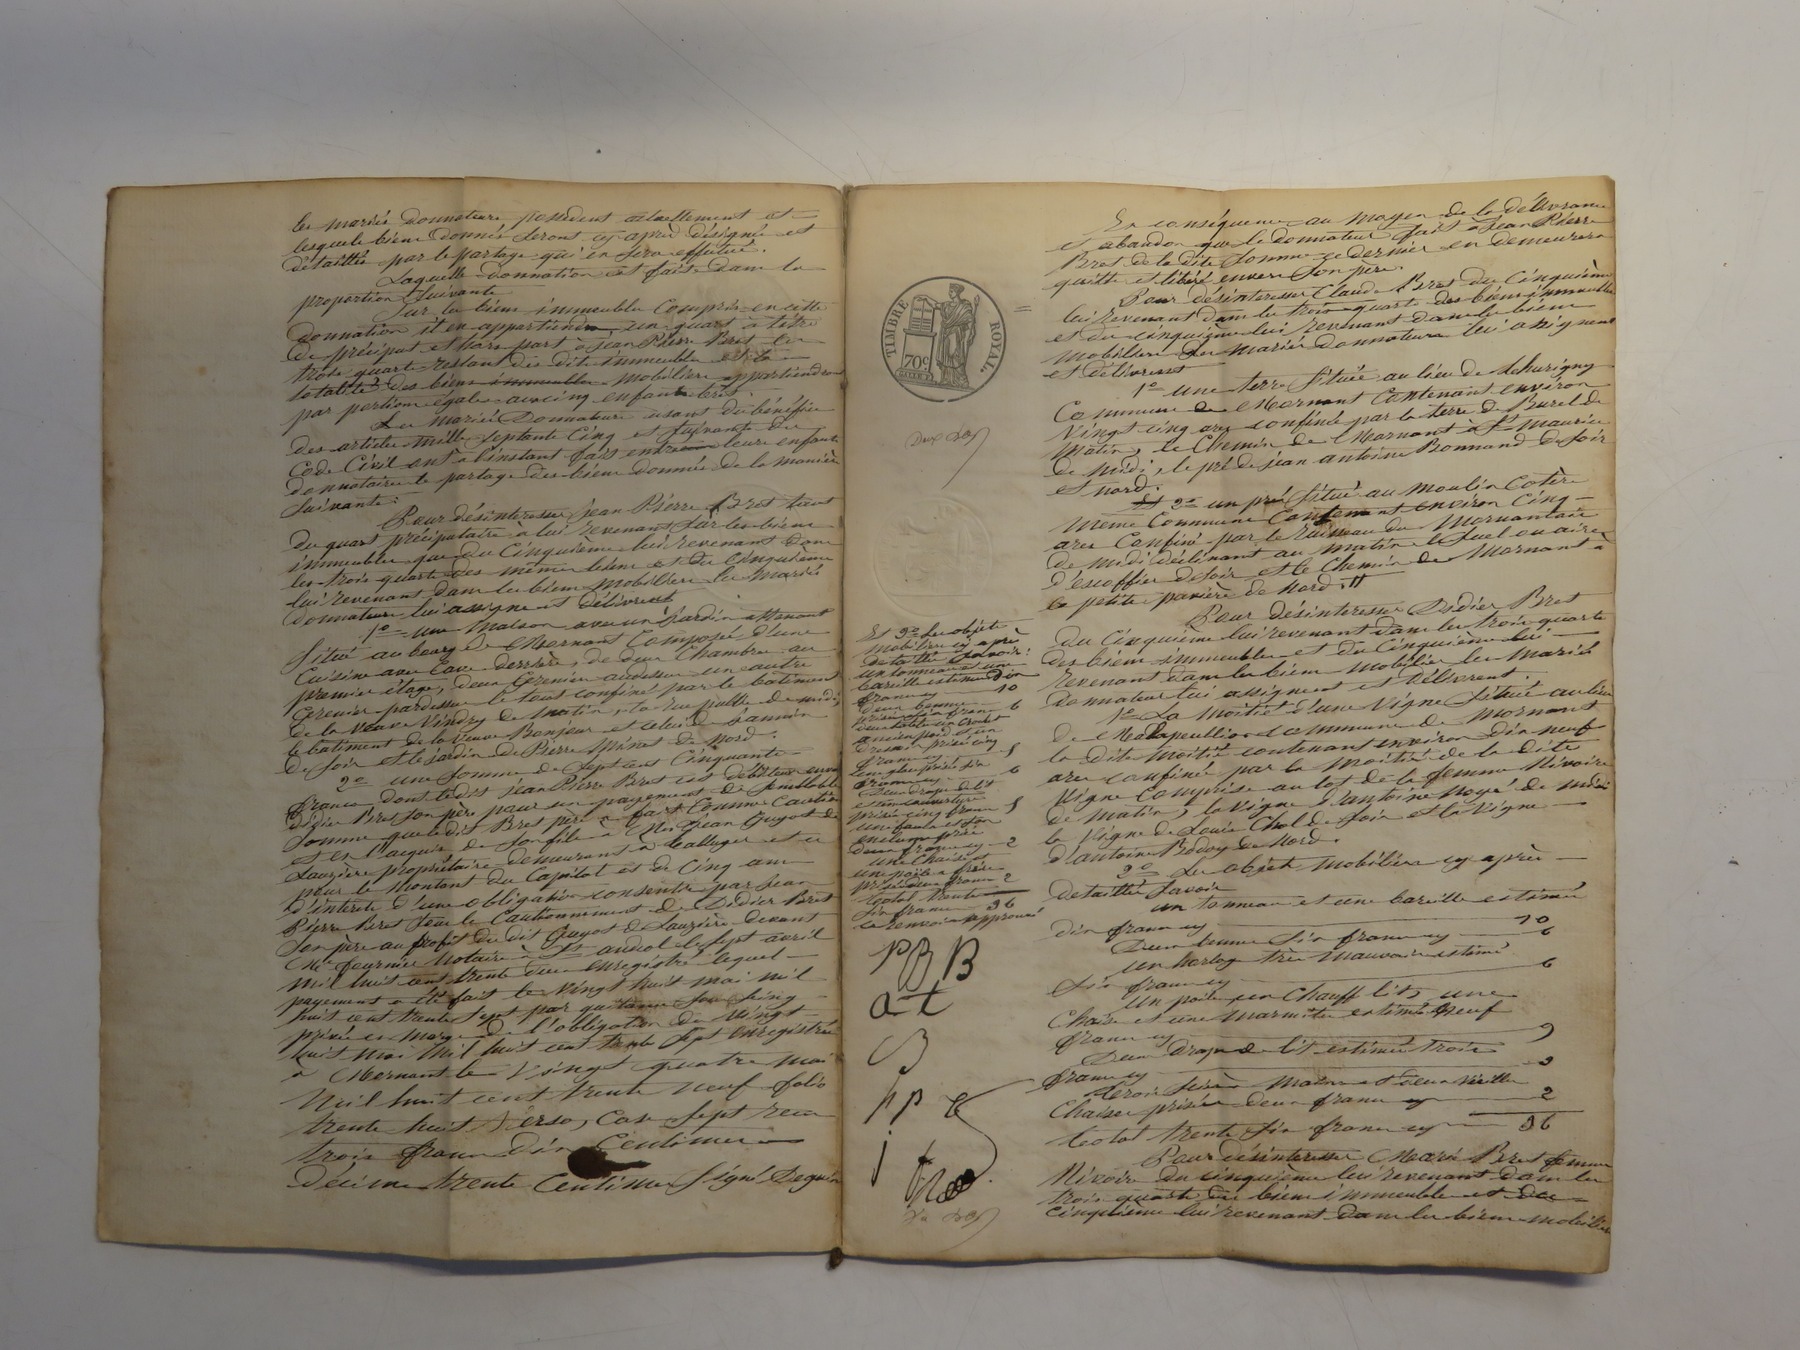 les mariés donnateurs possèdent actuellement et
lesquels biens donnés seront cy après désignés et
détaillés par le partage qui en sera effectué.
Laquelle donnation est faite dans la
proportion suivante
Sur les biens immeubles compris en cette
donnation il en appartiendra un quart à titre
de préciput et hors part à Jean Pierre Bret les
trois quarts restant des dits immeubles et la
totalité des biens immeubles mobiliers appartiendront
par portion égale aux cinq enfants Bret
Les mariés Donnateurs usant du bénéfice
des articles mille septante cinq et suivants du
Code Civil ont à l'instant fait entre leurs enfants
donnataires le partage des biens donnés de la manière
suivante :
Pour désintéresser Jean Pierre Bret tant
du quart préciputaire à lui revenant sur les biens
immeubles que du cinquième lui revenant dans
les trois quarts des mêmes biens et du cinquième
lui revenant dans les biens mobiliers les mariés
donnateurs lui assignent et délivrent
1o une maison avec un jardin attenant
situé au bourg de Mornant composée d'une
cuisine avec cave derrière, de deux chambres au
premier étage, deux greniers au dessus et un autre
grenier par dessus le tout confiné par le batiment
de la veuve Vindry de matin, la rue public de midi,
le batiment de la veuve Bonjour et celui de
de soir et le jardin de Pierre de nord.
2o une somme de sept cent cinquante
francs, dont le dit Jean Pierre Bret est débiteur envers
Didier Bret son père pour un payement de semblable
somme que le dit Bret père a fait comme caution
et en l'acquit de son fils à Mr Jean Guyot de
Lauzière propriétaire demeurant à et ce
pour le montant du capital et de cinq ans
d'intérêts d'une obligation consentie par Jean
Pierre Bret sous le cautionnement de Didier Bret
son père au profit du dit Guyot de Lauzière devant
Me fournier notaire à St andéol le sept avril
mil huit cent trente deux enregistré lequel
payement a été fait le vingt huit mai mil
huit cent trente sept par quittance sous seing
privé en marge de l'obligation du vingt
huit mai mil huit cent trente sept enregistrée
à Mornant le vingt quatre mai
mil huit cent trente neuf folio
trente huit verso, case sept reçu
trois francs dix centimes
décime trente centimes signé Seguin
TIMBRE ROYAL.
70c
Et 2o les objets
mobiliers cy après
détaillés savoir :
un tonneau et une
bareille estimés dix
francs cy 10
deux bennes
6
prisés cinq
francs cy 5
6
deux draps de lit
et une couverture
prisés cinq francs 5
deux francs cy 2
une chaise et
une poile à frire
prisés deux francs 2
total trente
six francs 36
le renvoi approuvé
PB B
a t
B
p p
j
En conséquence au moyen de la délivrance
et abandon que le donnateur fait à Jean Pierre
Bret de la dite somme ce dernier en demeurera
quitte et libéré envers son père.
Pour désintéresser Claude Bret du cinquième
lui revenant dans les trois quarts des biens immeubles
et du cinquième lui revenant dans les biens
mobiliers les mariés donnateurs lui assignent
et délivrent
1o une terre située au lieu de
Commune de Mornant contenant environ
vingt cinq ares confinée par la terre de Burel de
matin, le chemin de Mornant à St Maurice
de midi, le pré de Jean antoine Bonnand de soir
et nord.
Et 2o un pré situé au moulin
même Commune contenant environ cinq
ares confiné par le ruisseau du Mornantais
de midi déclinant au matin le suel ou aire
d'escoffier de soir et le chemin de Mornant à
la petite de nord.
Pour désintéresser Didier Bret
du cinquième lui revenant dans les trois quarts
des biens immeubles et du cinquième lui
revenant dans les biens mobiliers les mariés
donnateurs lui assignent et délivrent.
1o La moitié d'une vigne située au lieu
de commune de Mornant
la dite moitié contenant environ dix neuf
ares confinée par la moitié de la dite
vigne comprise au lot de la femme Nivoire
de matin, la vigne d'antoine noyé de midi
la vigne de Louis Chol de soir et la vigne
d'antoine Bodoy de nord.
2o Les objets mobiliers cy après
détaillés savoir
un tonneau et une bareille estimés
dix francs cy 10
Deux bennes six francs cy 6
un horloge très mauvais estimé
six francs cy 6
Un poile un chauff lits, une
chaise et une marmite estimés neuf
francs cy 9
Deux draps de lit estimés trois
francs cy 3
trois à mains et deux vieilles
chaises prisées deux francs cy 2
total trente six francs cy 36
Pour désintéresser Marie Bret femme
Nivoire du cinquième lui revenant dans les
trois quarts des biens immeubles et du
cinquième lui revenant dans les biens mobiliers